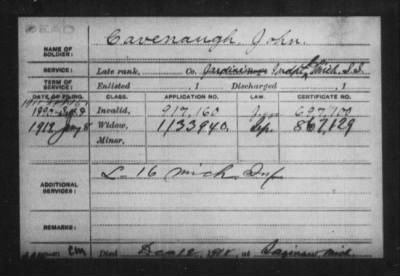 DEAD
NAME OF SOLDIER: Cavenaugh, John.
SERVICE: Late rank, Co. Jardine's Indpt. Mich. S.S.
TERM OF SERVICE: Enlisted , 1 Discharged , 1
DATE OF FILING. CLASS. APPLICATION NO. LAW. CERTIFICATE NO.
Invalid, 917.160
Widow, 1133940. 867,129
Minor,
ADDITIONAL SERVICES: L-16 Mich Inf
REMARKS:
Died Dec 12, at Saginaw Mich.